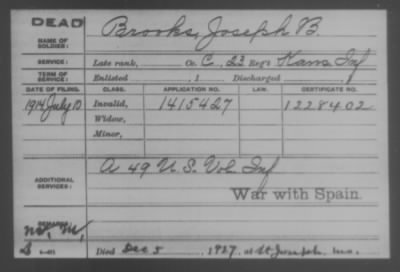 DEAD
NAME OF SOLDIER: Brooks, Joseph B.
SERVICE: Late rank, Co. C, 23 Reg't Kans Inf
TERM OF SERVICE: Enlisted , 1 Discharged , 1
DATE OF FILING. CLASS. APPLICATION NO. LAW. CERTIFICATE NO.
1914 July 10 Invalid, 1415427 1228402
Widow,
Minor,
ADDITIONAL SERVICES: A 49 U.S. Vol. Inf
War with Spain.
REMARKS:
Died Dec 5 1927, at St Joseph, Mo.